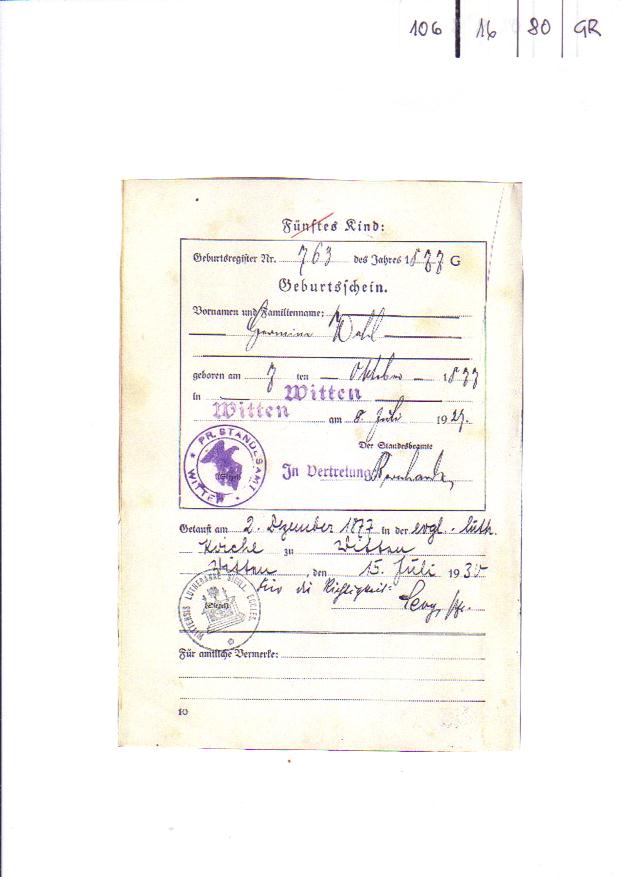 106 | 16 | 80 | GR
Fünftes Kind:
Geburtsregister Nr. 763 des Jahres 1877 G
Geburtsschein.
Vornamen und Familienname:
Hermine Wahl
geboren am 7 ten Oktober 1877
in Witten
Witten am 8. Juli 1927.
Der Standesbeamte
PR. STANDESAMT
WITTEN
(Siegel)
In Vertretung
Getauft am 2. Dezember 1877 in der evgl.-luth.
Kirche zu Witten
Witten, den 15. Juli 1935
Für die Richtigkeit:
(Siegel)
Für amtliche Vermerke:
10